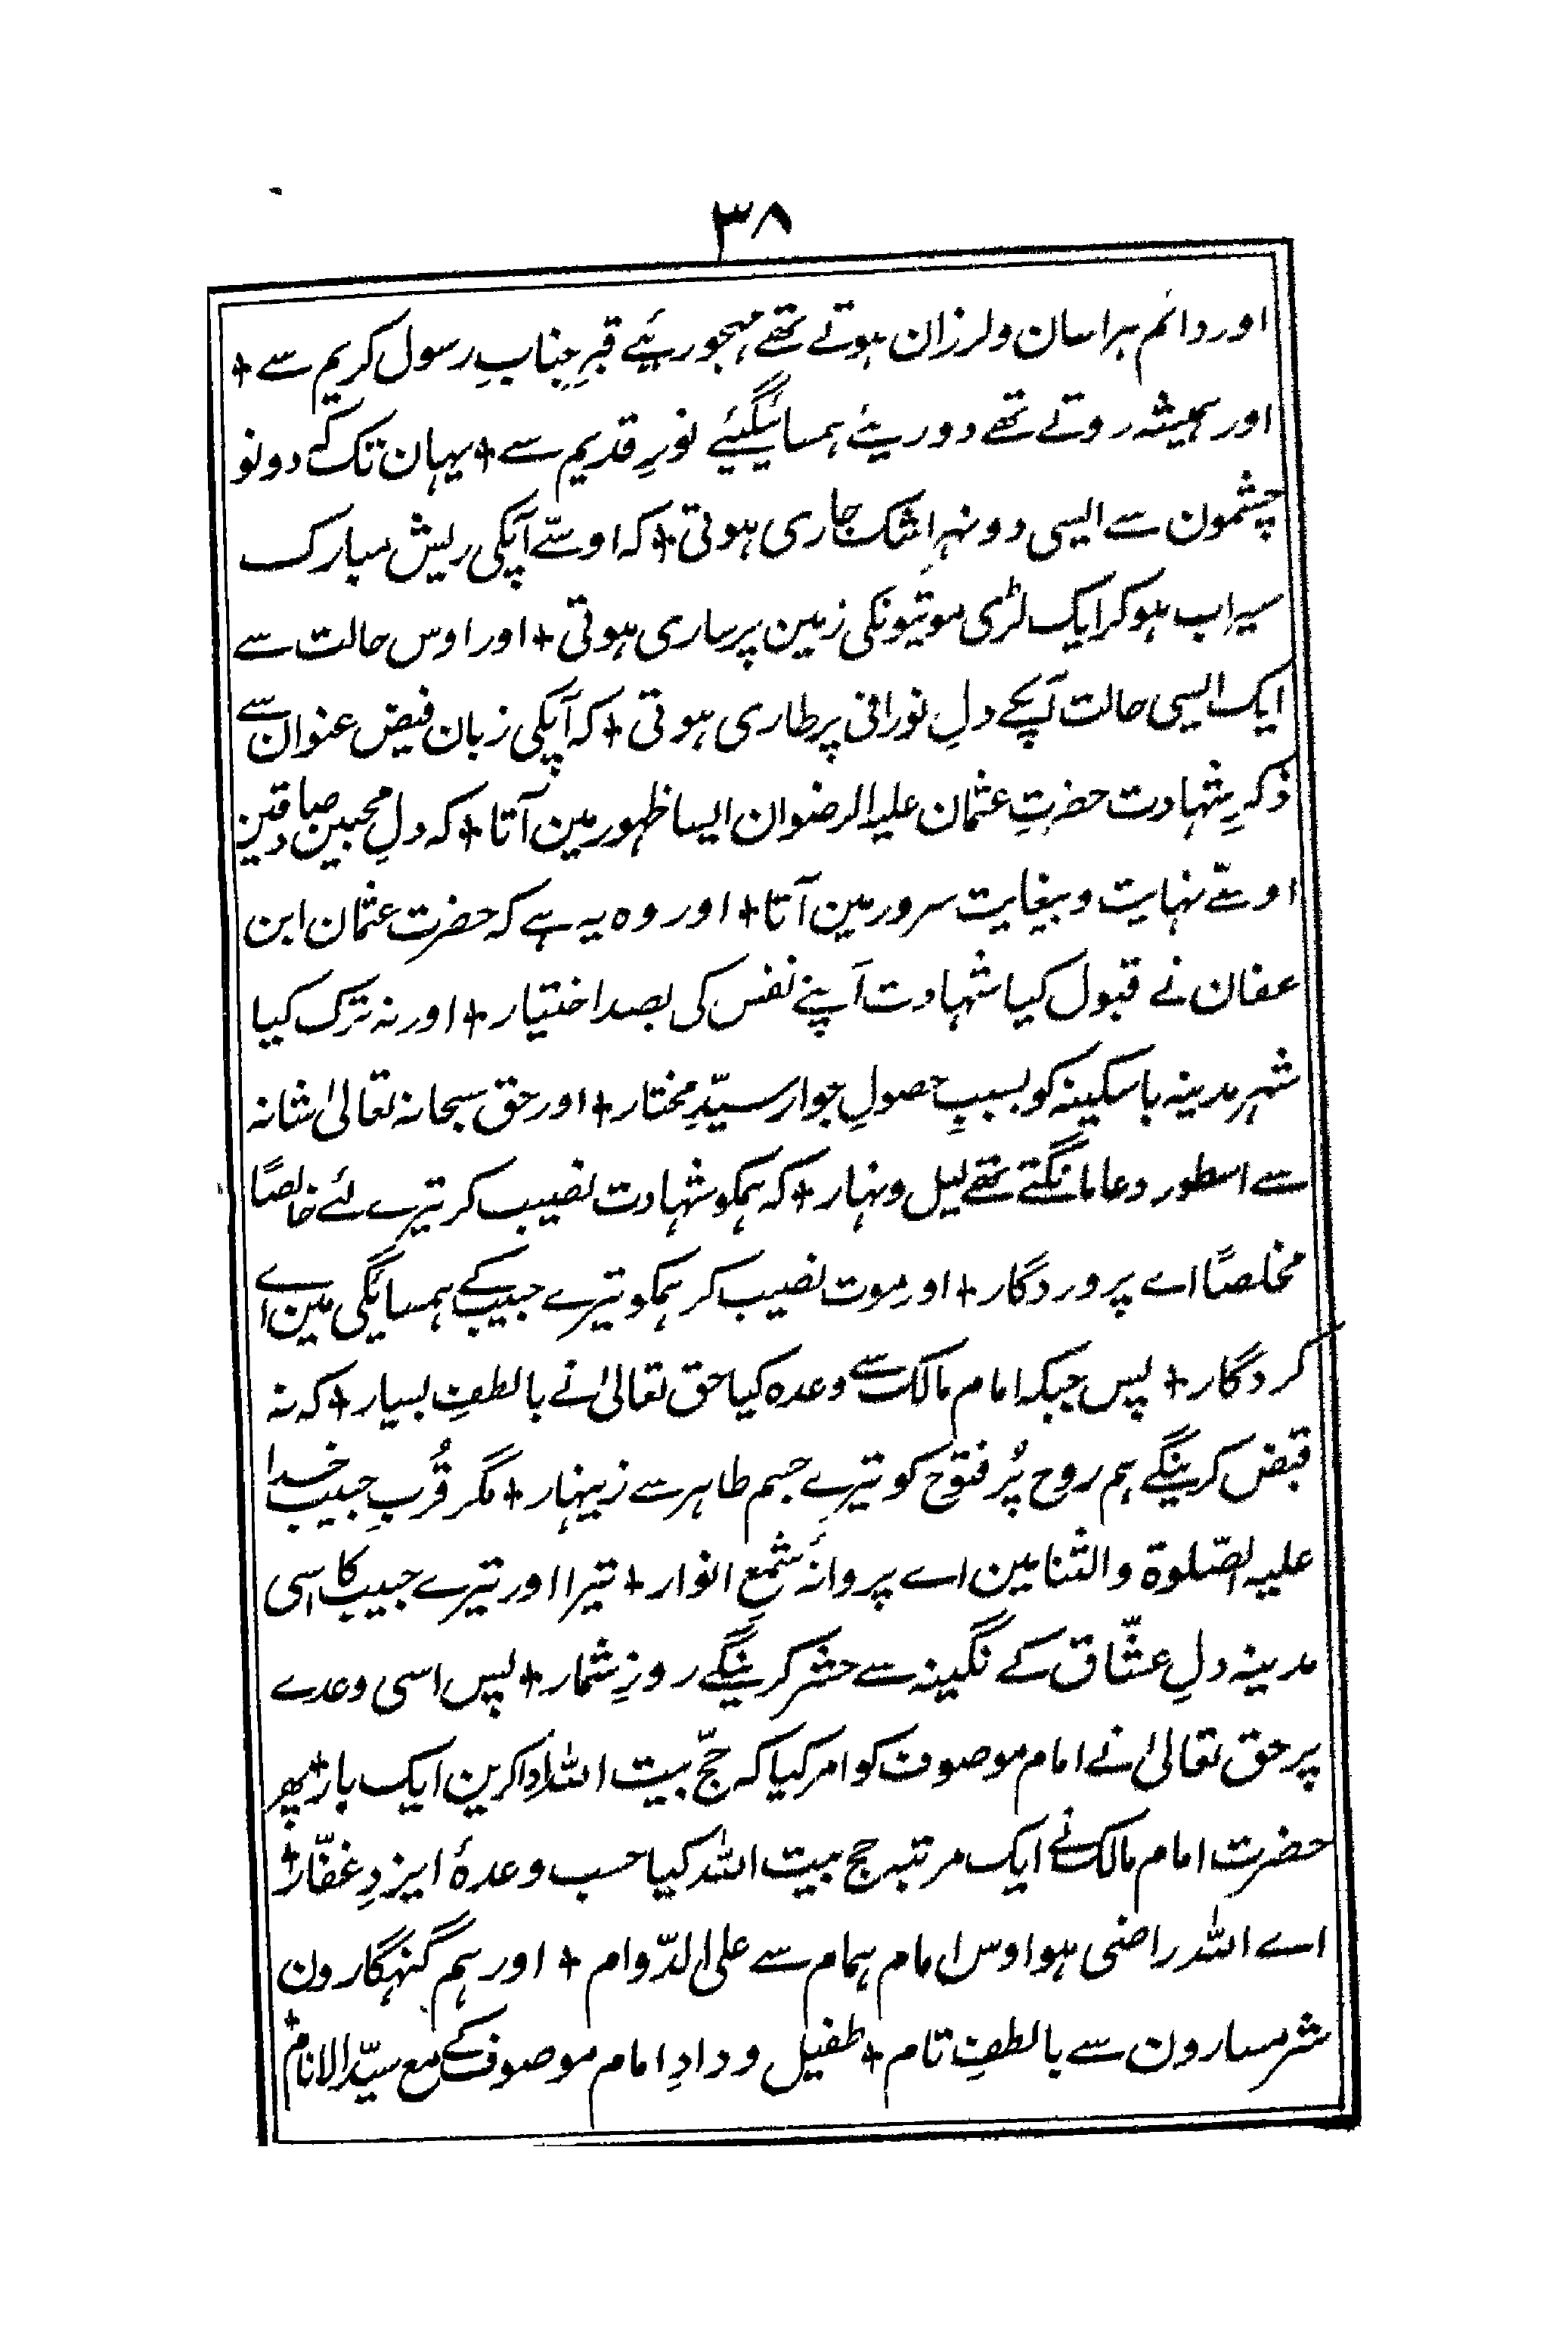 ۳۸
اور دائم ہراسان و لرزان ہوتے تھے مہجوریئے قبرِ جنابِ رسول کریم سے +
اور ہمیشہ روتے تھے دوریئے ہمسایگیئے نورِ قدیم سے + یہان تک کے دونو
چشمون سے ایسی دو نہرِ اشک جاری ہوتی + کہ اوسّے آپکی ریش مبارک
سیراب ہو کر ایک لڑی موتیونکی زمین پر ساری ہوتی + اور اوس حالت سے
ایک ایسی حالت آپکے دلِ نورانی پر طاری ہوتی + کہ آپکی زبان فیض عنوان سے
ذکرِ شہادت حضرتِ عثمان علیہ الرضوان ایسا ظہور مین آتا + کہ دلِ محبین صادقین
اوسّے نہایت و بیغایت سرور مین آتا + اور وہ یہ ہے کہ حضرت عثمان ابن
عفان نے قبول کیا شہادت اَپنے نفس کی بصد اختیار + اور نہ ترک کیا
شہرِ مدینہ باسکینہ کو بسببِ حصولِ جوار سیّدِ مختار + اور حق سبحانہ تعالیٰ شانہ
سے اسطور دعا مانگتے تھے لیل و نہار + کہ ہمکو شہادت نصیب کر تیرے لئے خالصًا
مخلصًا اے پروردگار + اور موت نصیب کر ہمکو تیرے حبیب کے ہمسایگی مین اے
کردگار + پس جبکہ امام مالک سے وعدہ کیا حق تعالیٰ نے بالطفِ بسیار + کہ نہ
قبض کرینگے ہم روح پُر فتوح کو تیرے جسم طاہر سے زینہار + مگر قُربِ حبیب خدا
علیہ الصّلوۃ والثنا مین اے پروانۂ شمع انوار + تیرا اور تیرے حبیب کا اسی
مدینہ دلِ عشّاق کے نگینہ سے حشر کرینگے روزِ شمار + پس اسی وعدے
پر حق تعالیٰ نے امام موصوف کو امر کیا کہ حجّ بیت اللہ اَدا کرین ایک بار + پھر
حضرت امام مالک نے ایک مرتبہ حج بیت اللہ کیا حسب وعدۂ ایزدِ غفّار +
اے اللہ راضی ہو اوس امام ہمام سے علی الدّوام + اور ہم گنہگارون
شرمسارون سے بالطفِ تام + طفیل ودادِ امام موصوف کے مع سیّد الانام +